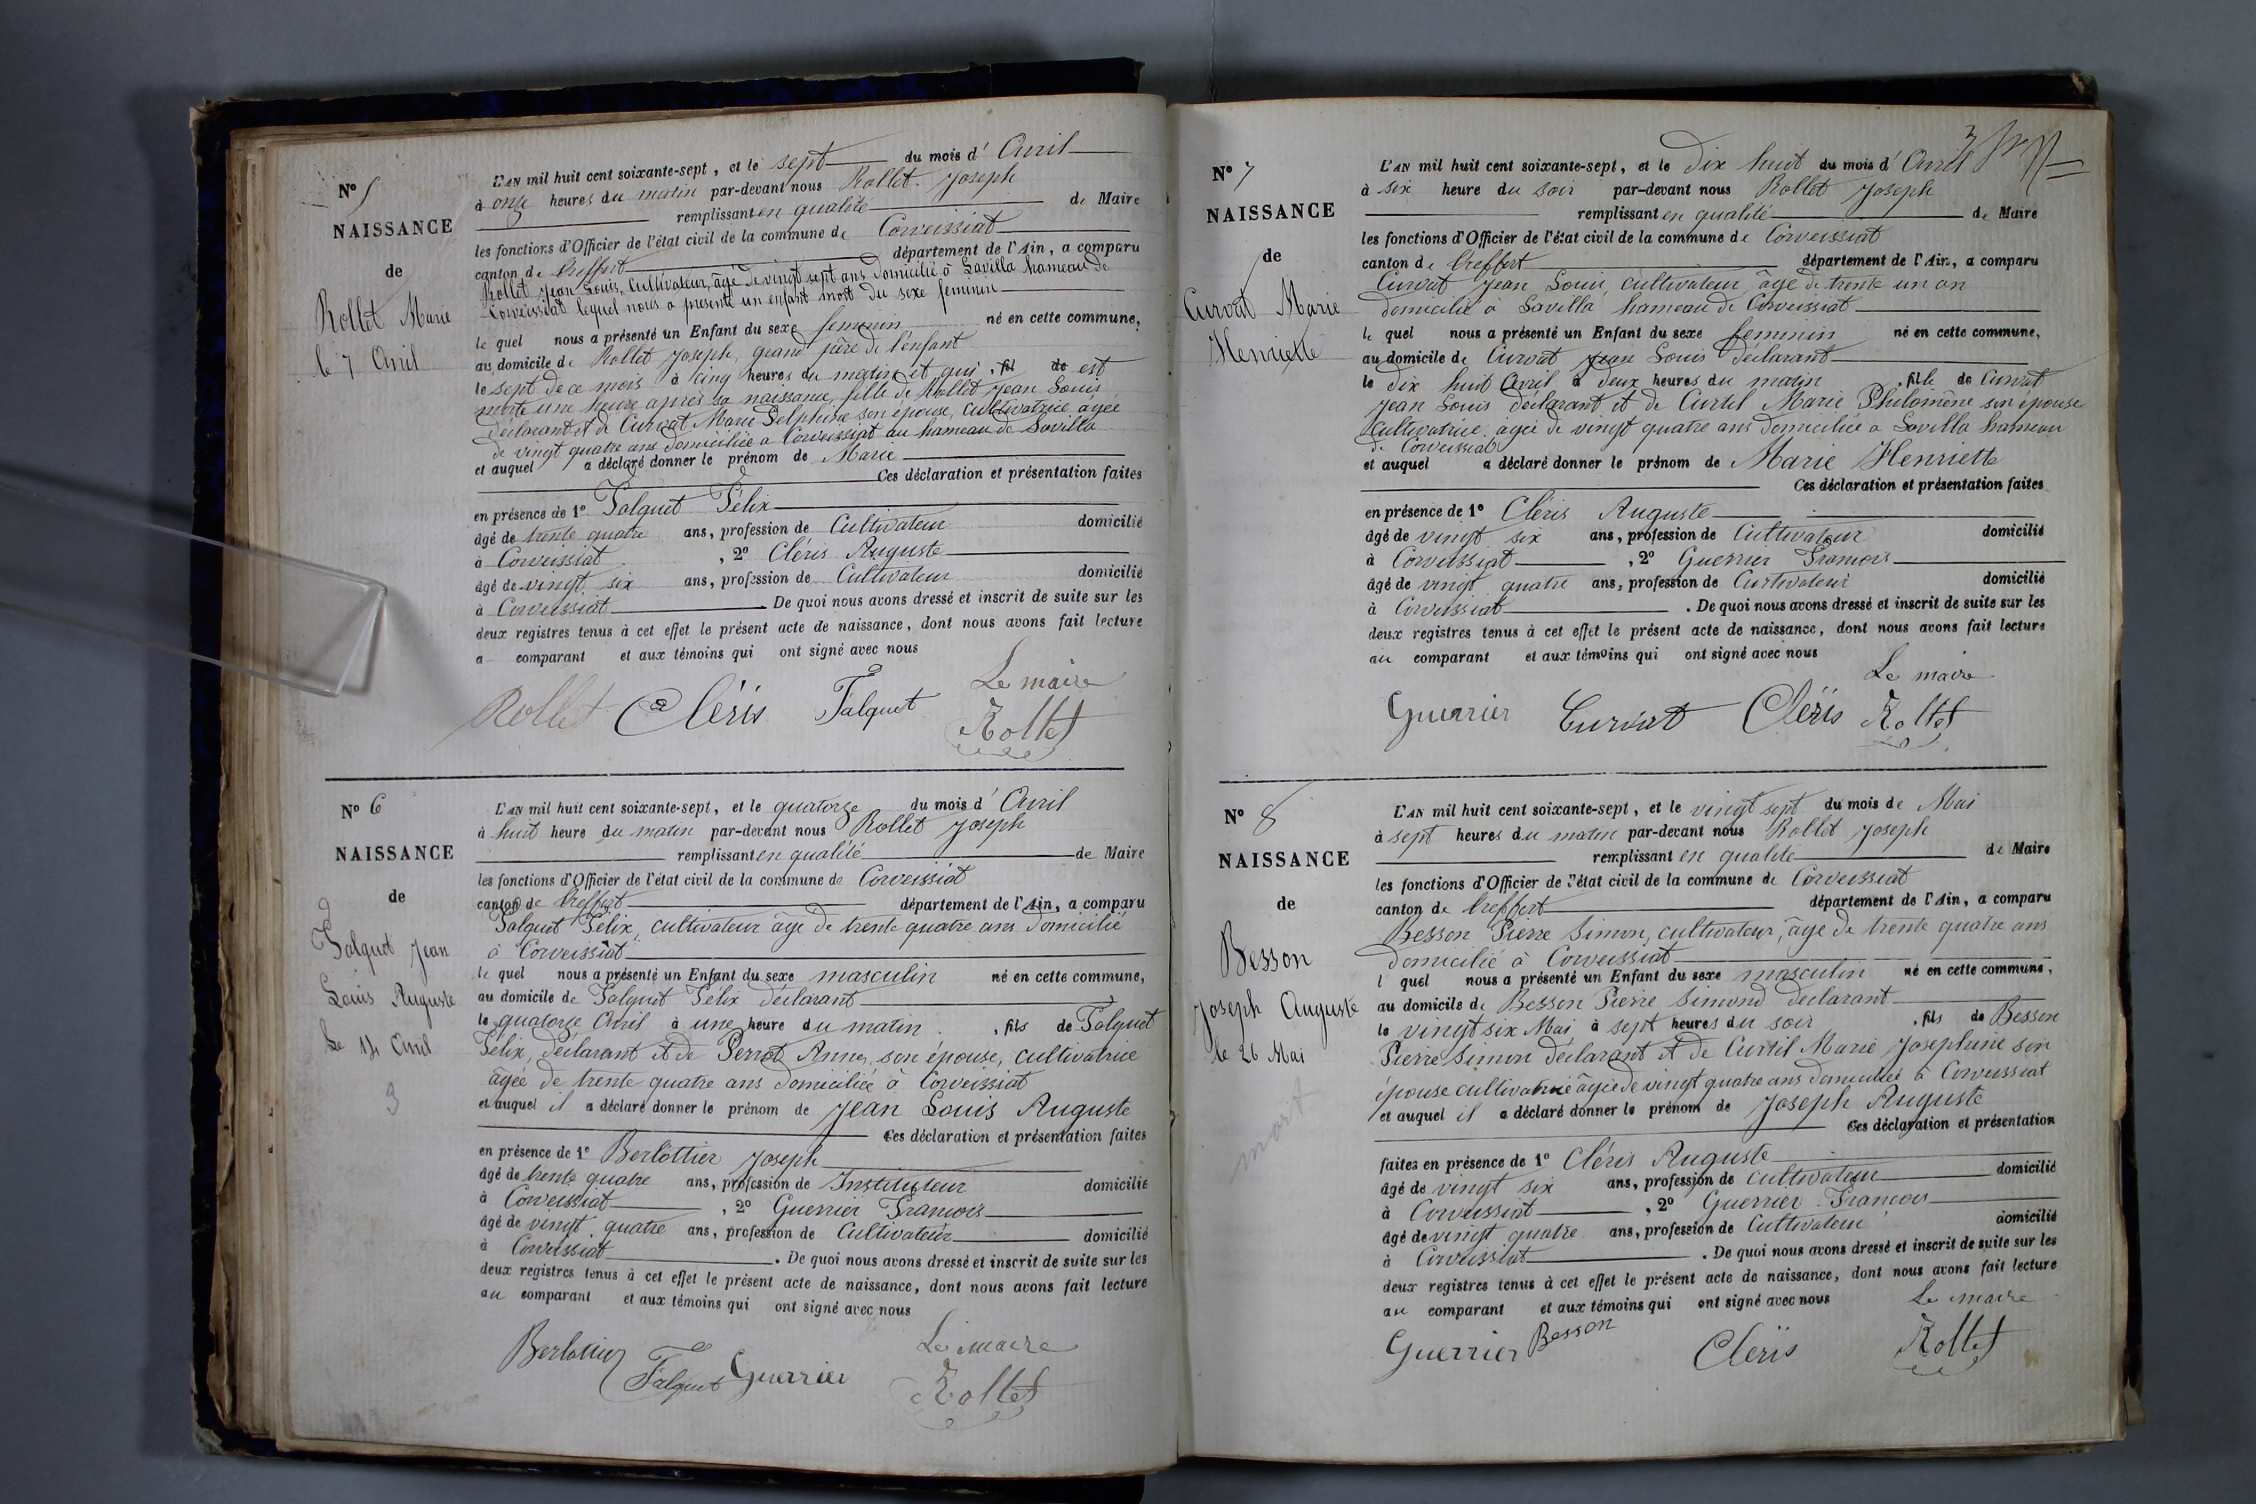 N° 5
NAISSANCE
de
Rollet Marie
le 7 Avril
L'AN mil huit cent soixante-sept, et le sept du mois d' Avril
à onze heures du matin par-devant nous Rollet Joseph
remplissant en qualité de Maire
les fonctions d'Officier de l'état civil de la commune de Corveissiat
canton de Treffort département de l'Ain, a comparu
Rollet Jean Louis, Cultivateur, âgé de vingt sept ans domicilié à Lavilla hameau de
Corveissiat lequel nous a présenté un enfant mort du sexe feminin
le quel nous a présenté un Enfant du sexe feminin né en cette commune,
au domicile de Rollet Joseph, grand père de l'enfant
le sept de ce mois à cinq heures du matin et qui , fil de est
morte une heure après sa naissance, fille de Rollet Jean Louis
déclarant et de Curvat Marie Delphine son épouse, cultivatrice âgée
de vingt quatre ans domiciliée à Corveissiat au hameau de Lavilla
et auquel a déclaré donner le prénom de Marie
Ces déclaration et présentation faites
en présence de 1° Falquet Félix
âgé de trente quatre ans, profession de Cultivateur domicilié
à Corveissiat , 2° Cléris Auguste
âgé de vingt six ans, profession de Cultivateur domicilié
à Corveissiat . De quoi nous avons dressé et inscrit de suite sur les
deux registres tenus à cet effet le présent acte de naissance, dont nous avons fait lecture
a comparant et aux témoins qui ont signé avec nous
Le maire
Rollet Cléris Falquet Rollet
N° 6
NAISSANCE
de
Falquet Jean
Louis Auguste
Le 14 Avril
3
L'AN mil huit cent soixante-sept, et le quatorze du mois d' Avril
à huit heure du matin par-devant nous Rollet Joseph
remplissant en qualité de Maire
les fonctions d'Officier de l'état civil de la commune de Corveissiat
canton de Treffort département de l'Ain, a comparu
Falquet Félix, cultivateur âgé de trente quatre ans domicilié
à Corveissiat
le quel nous a présenté un Enfant du sexe masculin né en cette commune,
au domicile de Falquet Félix déclarant
le quatorze Avril à une heure du matin , fils de Falquet
Félix, déclarant et de Perrot Anne, son épouse, cultivatrice
âgée de trente quatre ans domiciliée à Corveissiat
et auquel il a déclaré donner le prénom de Jean Louis Auguste
Ces déclaration et présentation faites
en présence de 1° Berlottier Joseph
âgé de trente quatre ans, profession de Instituteur domicilié
à Corveissiat , 2° Guerrier Francois
âgé de vingt quatre ans, profession de Cultivateur domicilié
à Corveissiat . De quoi nous avons dressé et inscrit de suite sur les
deux registres tenus à cet effet le présent acte de naissance, dont nous avons fait lecture
au comparant et aux témoins qui ont signé avec nous
Le maire
Berlottier Falquet Guerrier Rollet
3
N° 7
NAISSANCE
de
Curvat Marie
Henriette
L'AN mil huit cent soixante-sept, et le dix huit du mois d' Avril
à six heure du soir par-devant nous Rollet Joseph
remplissant en qualité de Maire
les fonctions d'Officier de l'état civil de la commune de Corveissiat
canton de Treffort département de l'Ain, a comparu
Curvat Jean Louis, cultivateur âgé de trente un an
domicilié à Lavilla hameau de Corveissiat
le quel nous a présenté un Enfant du sexe feminin né en cette commune,
au domicile de Curvat Jean Louis déclarant
le dix huit Avril à deux heures du matin , fille de Curvat
Jean Louis déclarant et de Curtil Marie Philomène son épouse
cultivatrice, âgée de vingt quatre ans domiciliée à Lavilla hameau
de Corveissiat
et auquel a déclaré donner le prénom de Marie Henriette
Ces déclaration et présentation faites
en présence de 1° Cléris Auguste
âgé de vingt six ans, profession de Cultivateur domicilié
à Corveissiat , 2° Guerrier Francois
âgé de vingt quatre ans, profession de Cultivateur domicilié
à Corveissiat . De quoi nous avons dressé et inscrit de suite sur les
deux registres tenus à cet effet le présent acte de naissance, dont nous avons fait lecture
au comparant et aux témoins qui ont signé avec nous
Le maire
Guerrier Curvat Cléris Rollet
N° 8
NAISSANCE
de
Besson
Joseph Auguste
le 26 Mai
mort
L'AN mil huit cent soixante-sept, et le vingt sept du mois de Mai
à sept heures du matin par-devant nous Rollet Joseph
remplissant en qualité de Maire
les fonctions d'Officier de l'état civil de la commune de Corveissiat
canton de Treffort département de l'Ain, a comparu
Besson Pierre Simon, cultivateur, âgé de trente quatre ans
domicilié à Corveissiat
l quel nous a présenté un Enfant du sexe masculin né en cette commune,
au domicile de Besson Pierre Simond déclarant
le vingt six Mai à sept heures du soir , fils de Besson
Pierre Simon déclarant et de Curtil Marie Josephine son
épouse cultivatrice âgée de vingt quatre ans domiciliée à Corveissiat
et auquel il a déclaré donner le prénom de Joseph Auguste
Ces déclaration et présentation
faites en présence de 1° Cléris Auguste
âgé de vingt six ans, profession de cultivateur domicilié
à Corveissiat , 2° Guerrier Francois
âgé de vingt quatre ans, profession de Cultivateur domicilié
à Corveissiat . De quoi nous avons dressé et inscrit de suite sur les
deux registres tenus à cet effet le présent acte de naissance, dont nous avons fait lecture
au comparant et aux témoins qui ont signé avec nous
Le maire
Guerrier Besson Cléris Rollet